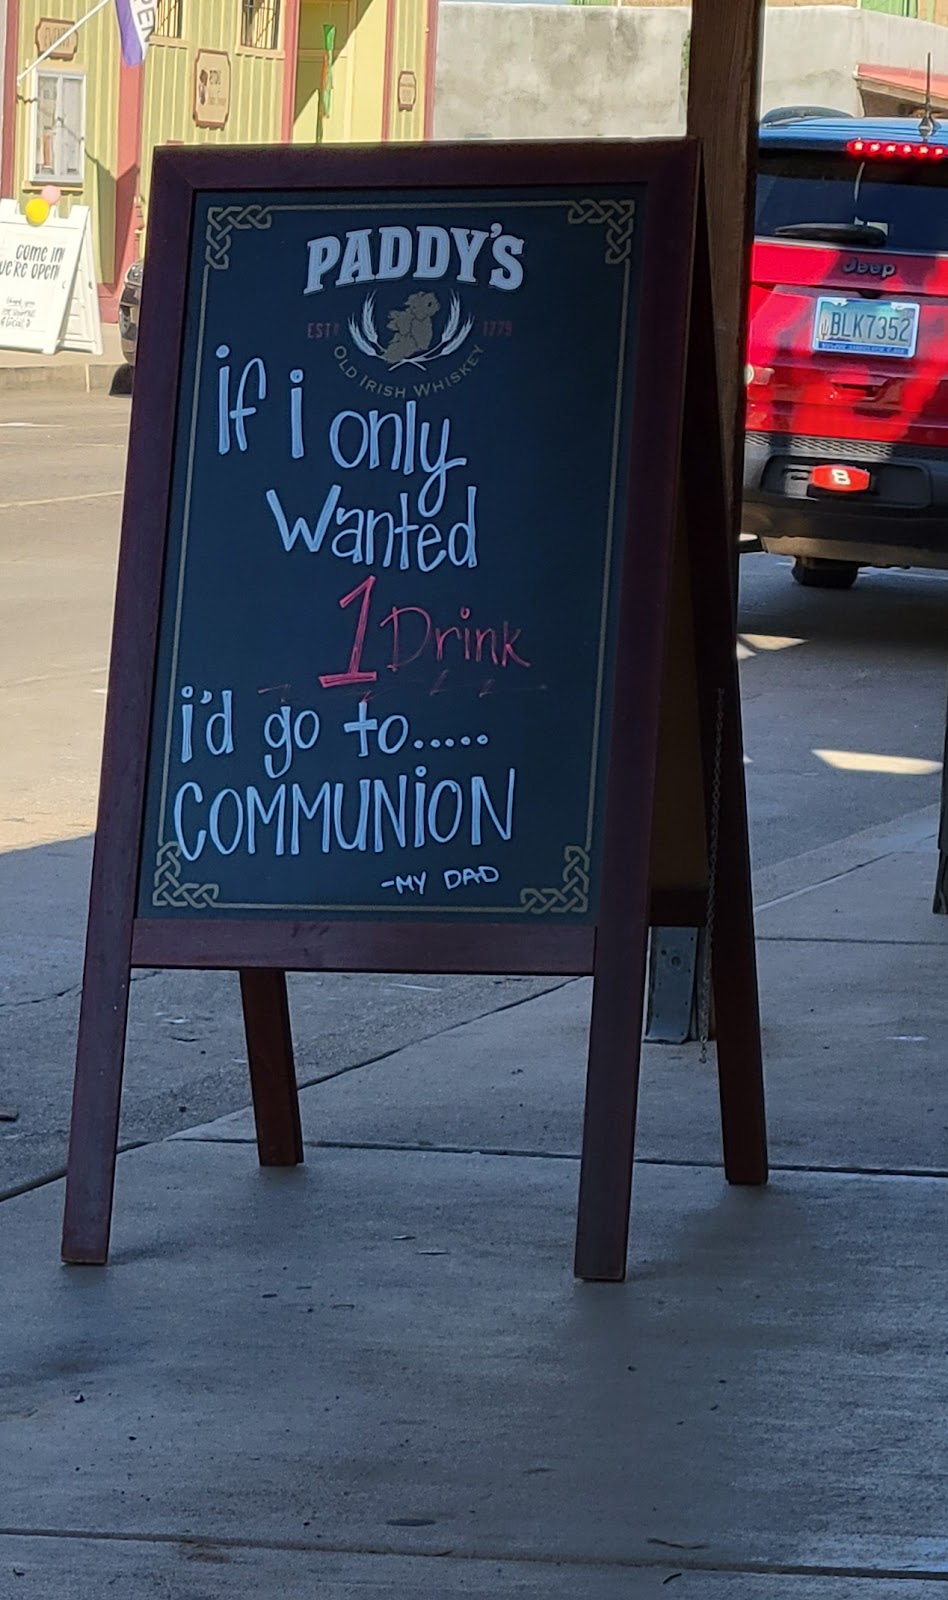 PADDY'S
ESTD 1779
OLD IRISH WHISKEY
if i only
Wanted
1 Drink
i'd go to.....
COMMUNiON
-MY DAD
COME IN
WE'RE OPEN
OPEN
Jeep
BLK7352
B